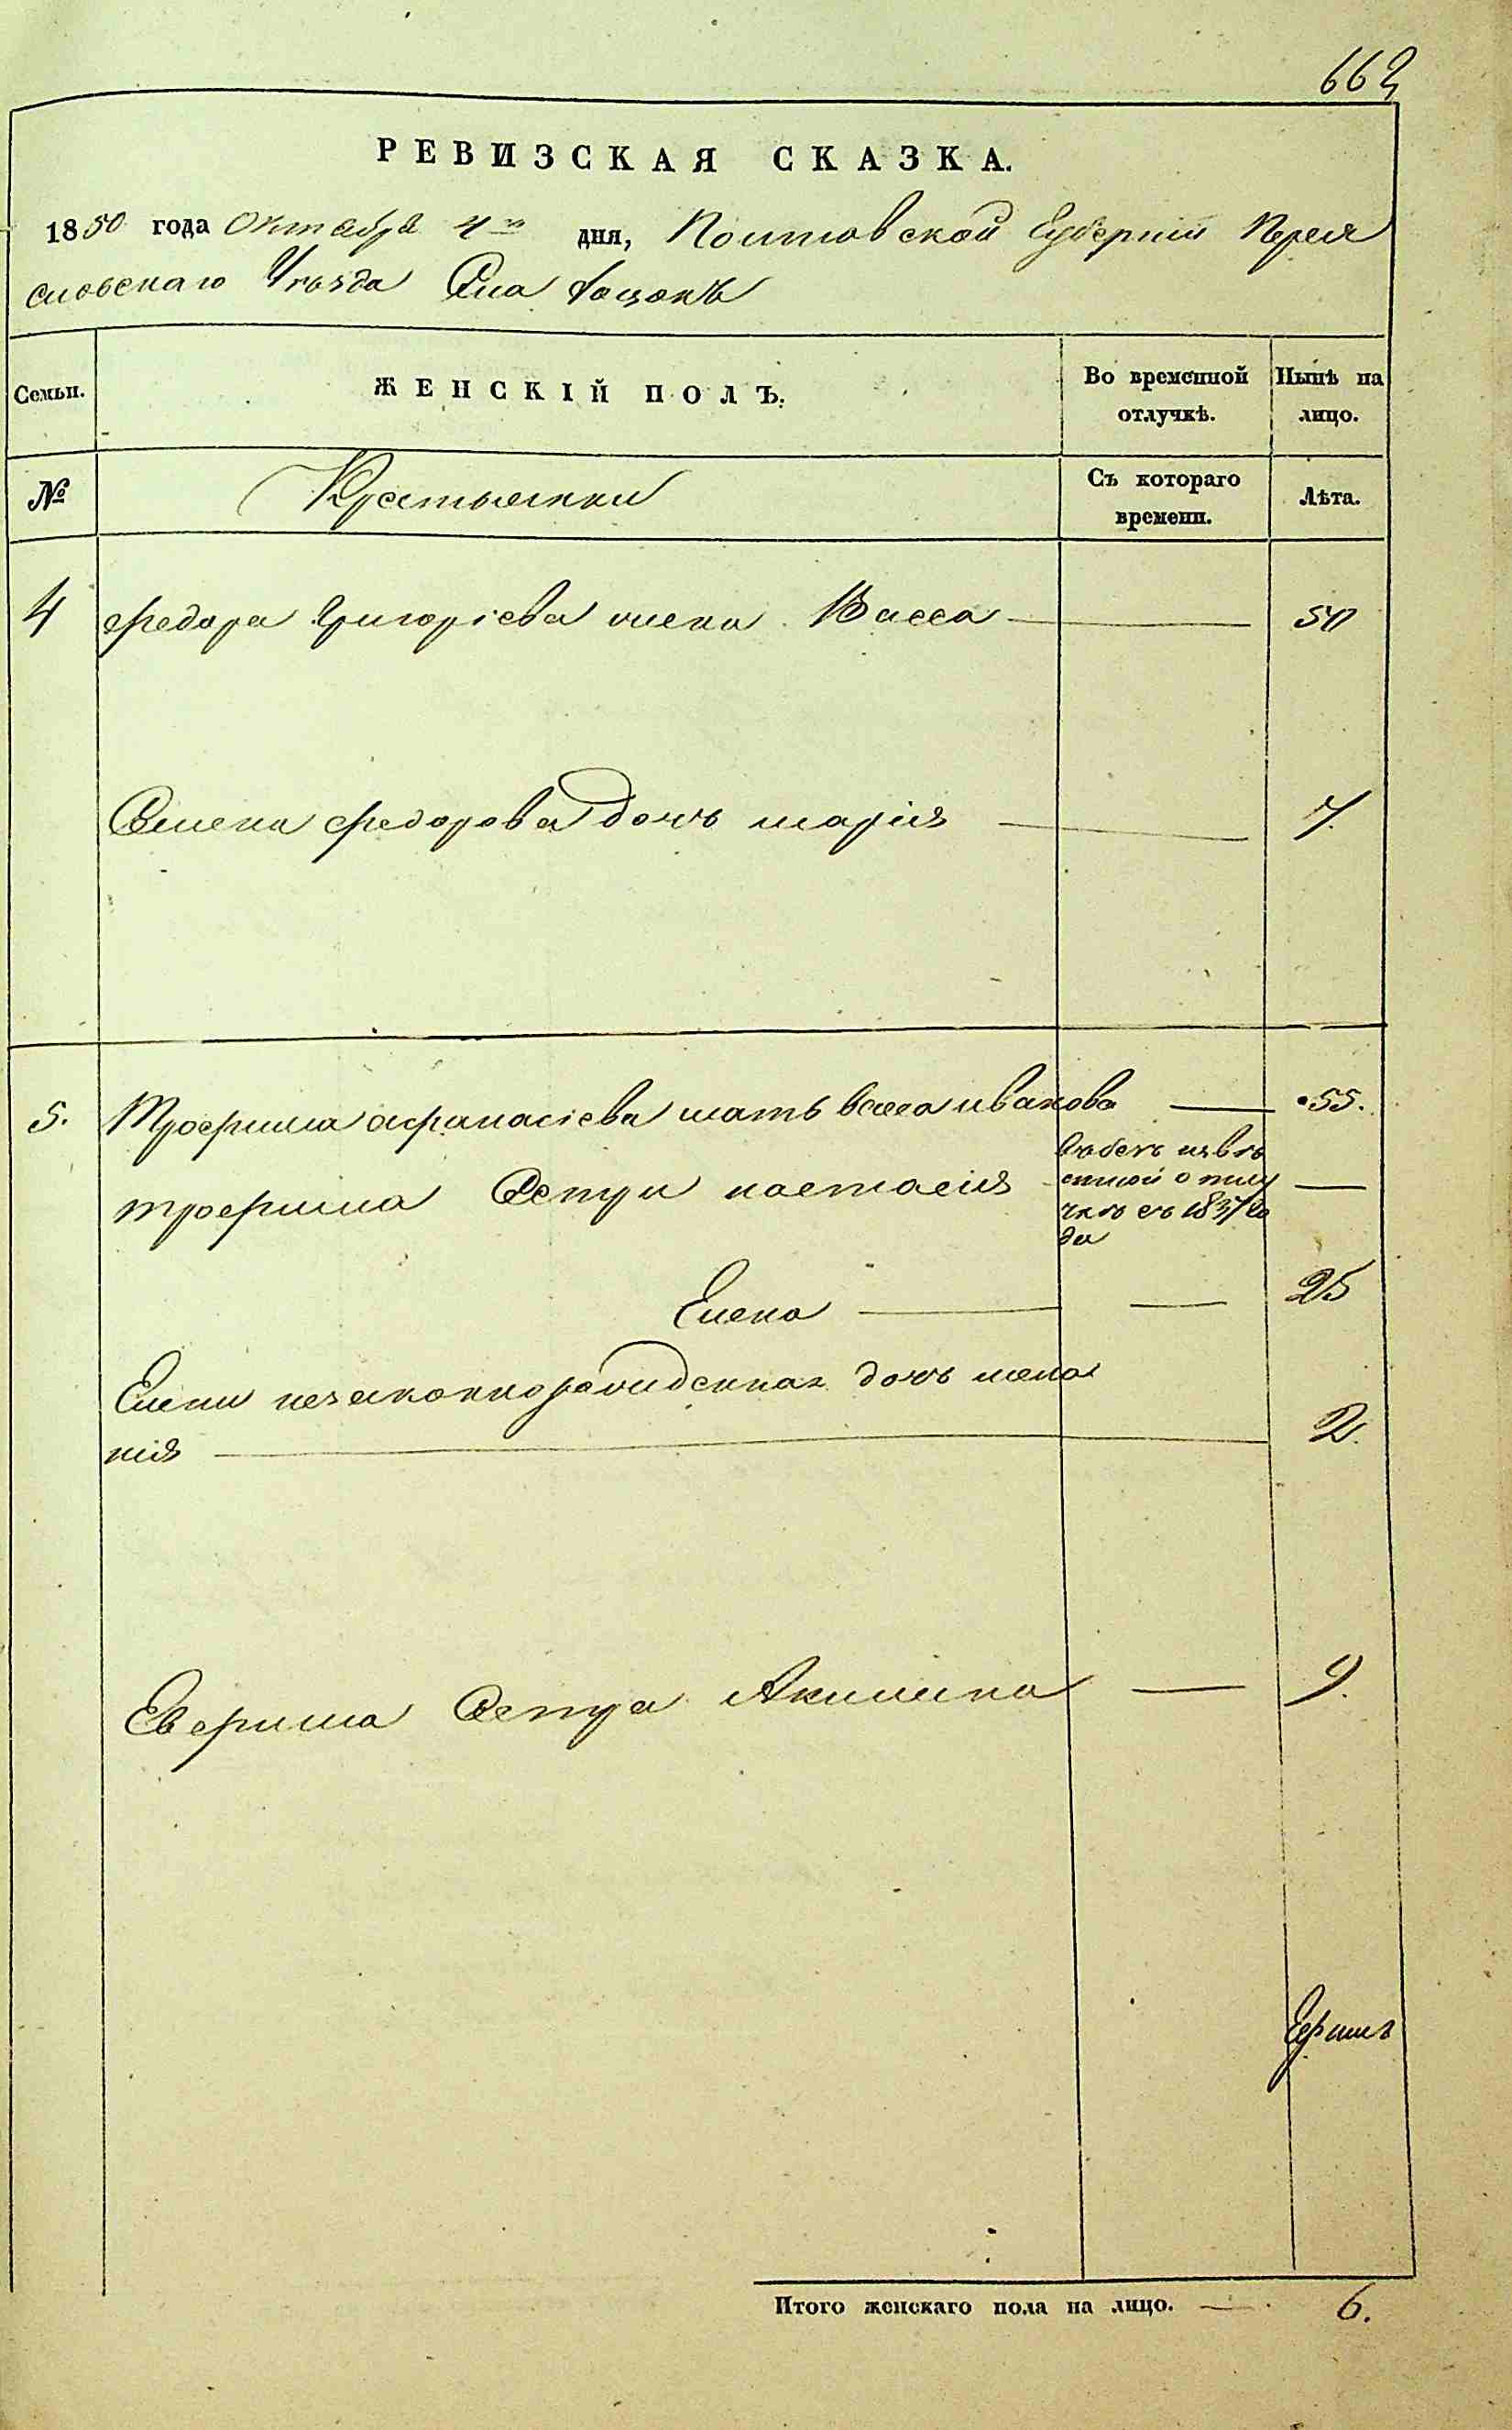 662
РЕВИЗСКАЯ СКАЗКА.
1850 года Октября 4го дня, Полтавской Губерніи Перея
словскаго Уезда Села
Семьи.
ЖЕНСКІЙ ПОЛЪ.
Во временной отлучкѣ.
Нынѣ на лицо.
№
Крестьянки
Съ котораго времени.
Лѣта.
4 Федора Григоріева жена Васса — 50
Семена Федорова дочь марія — 7.
5. Трофима афанасіева мать васса иванова — 55.
трофима Сестри настасія —
въ безъ извѣ
стной отлу
чкѣ съ 1837 го
да
Елена — 25
Елени незаконнорожденная дочь мела
нія — 2.
Ефима Сестра Акилина — 9.
Итого женскаго пола на лицо. — 6.